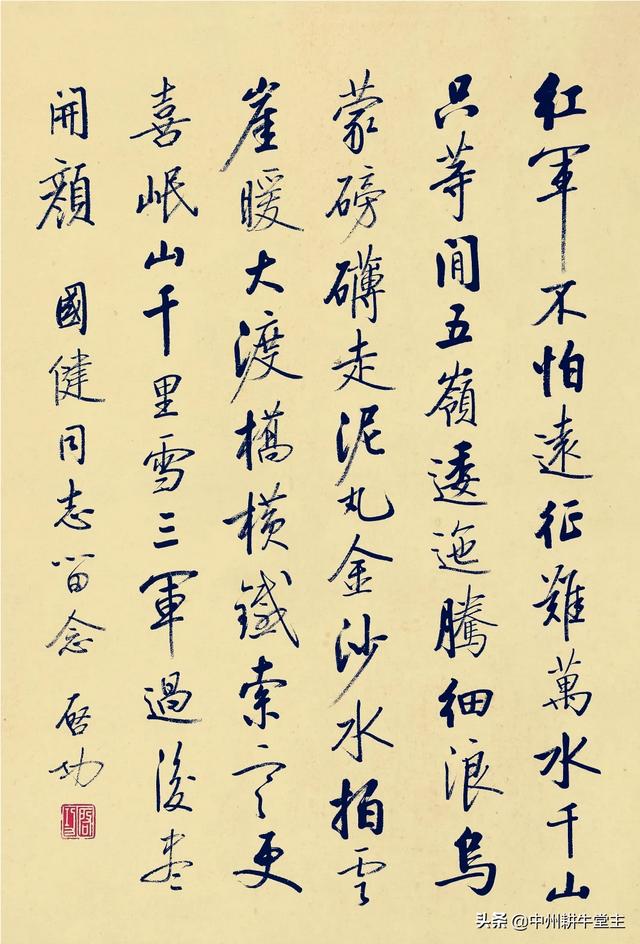 紅軍不怕遠征難萬水千山
只等閒五嶺逶迤騰細浪烏
蒙磅礴走泥丸金沙水拍雲
崖暖大渡橋橫鐵索寒更
喜岷山千里雪三軍過後盡
開顏 國健同志留念 啓功
頭条 @中州耕牛堂主